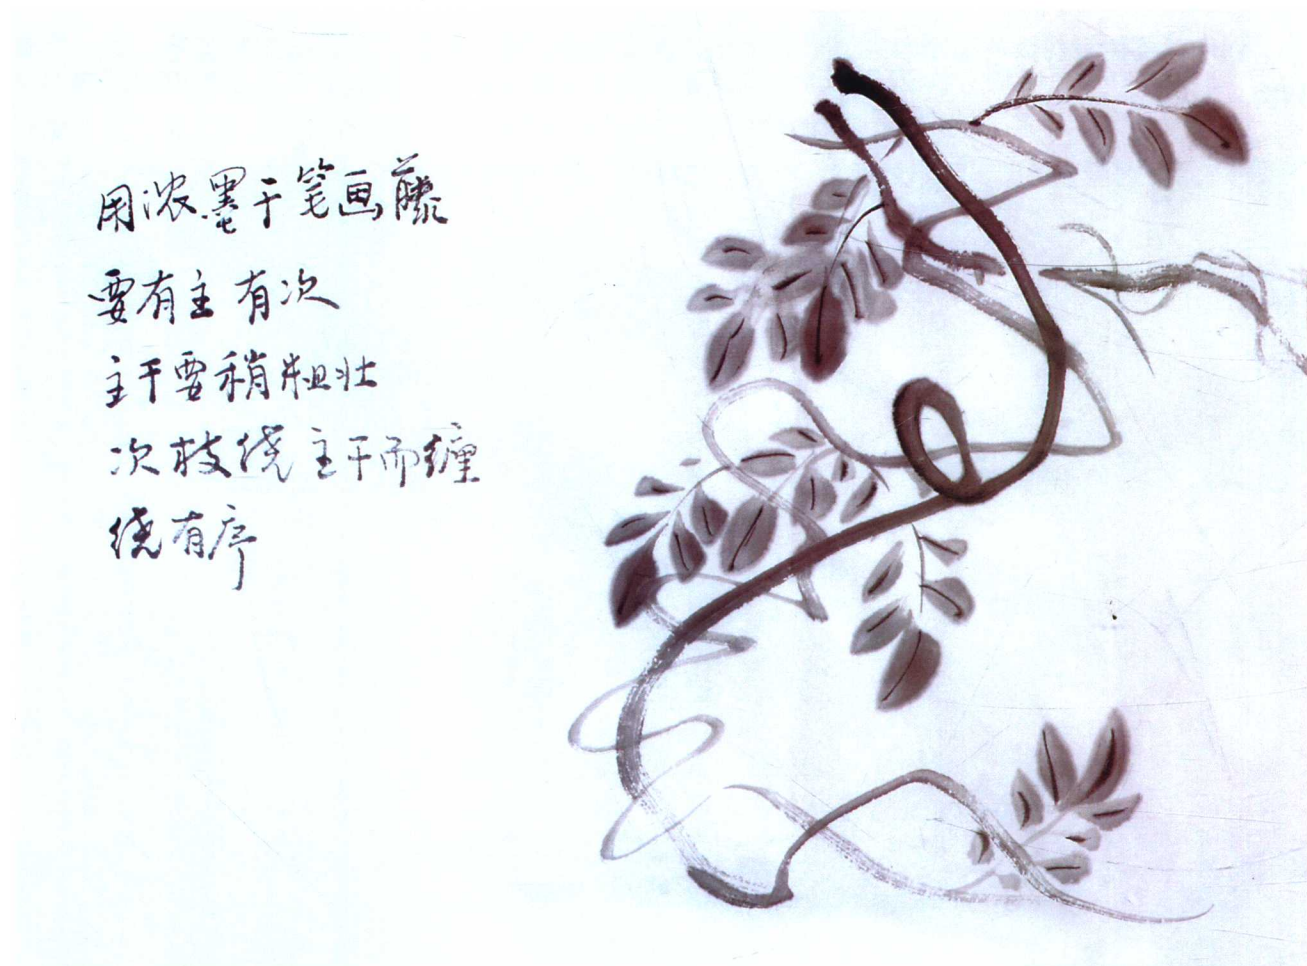 用浓墨干笔画藤
要有主有次
主干要稍粗壮
次枝绕主干而缠
绕有序